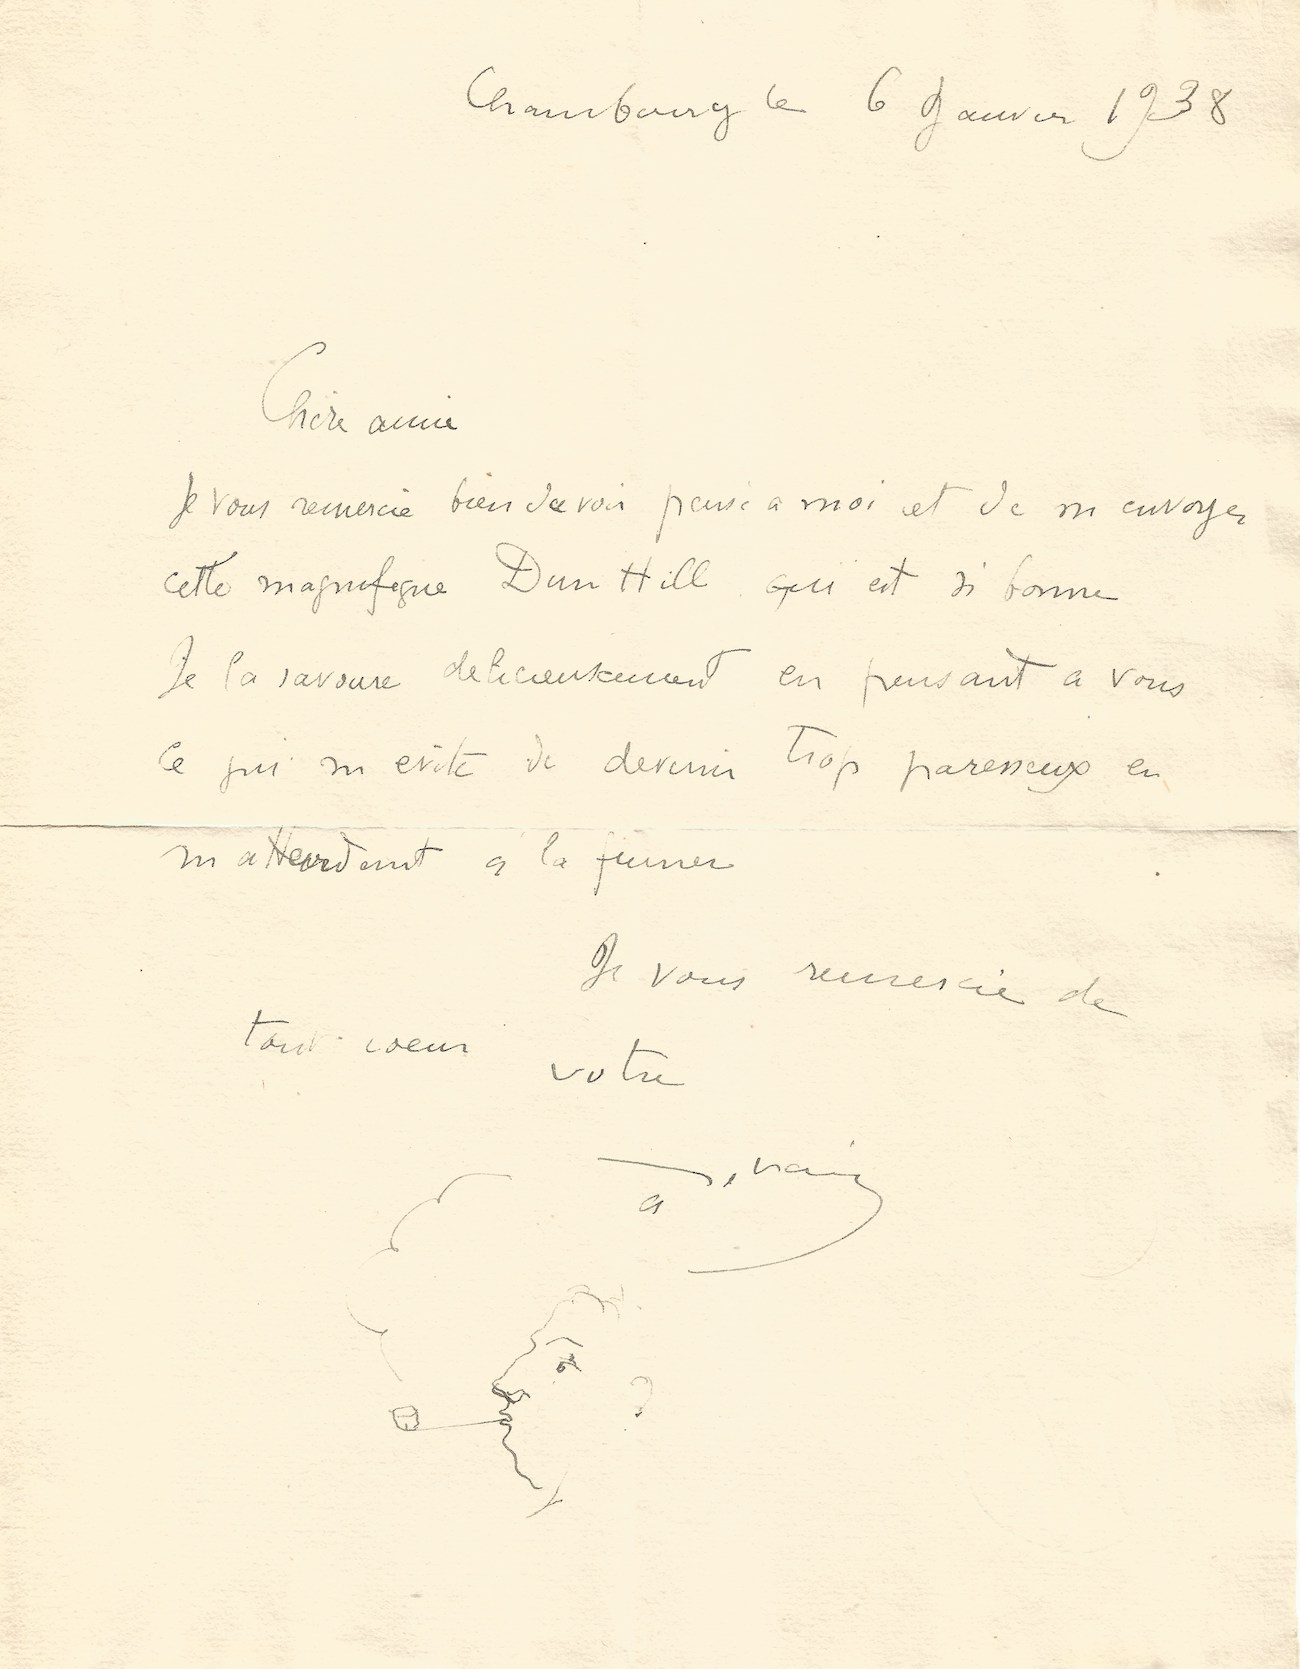 Chambourcy le 6 Janvier 1938
Chère amie
Je vous remercie bien davoir pensé a moi et de m envoyer
cette magnifique Dun Hill qui est si bonne
Je la savoure delicieusement en pensant a vous
ce qui m evite de devenir trop paresseux en
m attardant a la fumer
Je vous remercie de
tout coeur votre
a Derain